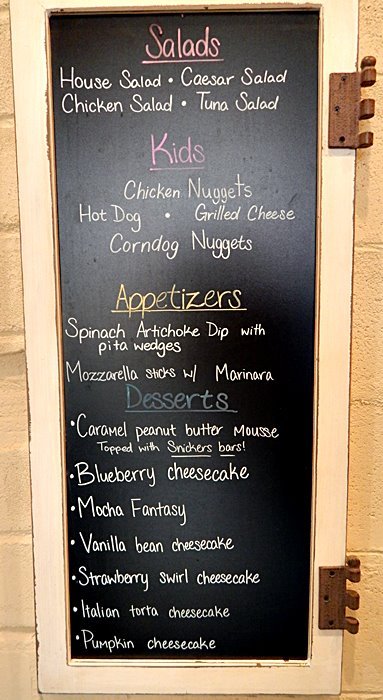 Salads
House Salad • Caesar Salad
Chicken Salad • Tuna Salad
Kids
Chicken Nuggets
Hot Dog • Grilled Cheese
Corndog Nuggets
Appetizers
Spinach Artichoke Dip with
pita wedges
Mozzarella sticks w/ Marinara
Desserts
• Caramel peanut butter mousse
Topped with Snickers bars!
• Blueberry cheesecake
• Mocha Fantasy
• Vanilla bean cheesecake
• Strawberry swirl cheesecake
• Italian torta cheesecake
• Pumpkin cheesecake